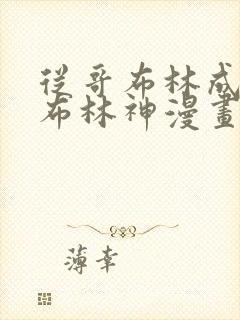 從哥布林成
布林神漫畫
薄幸